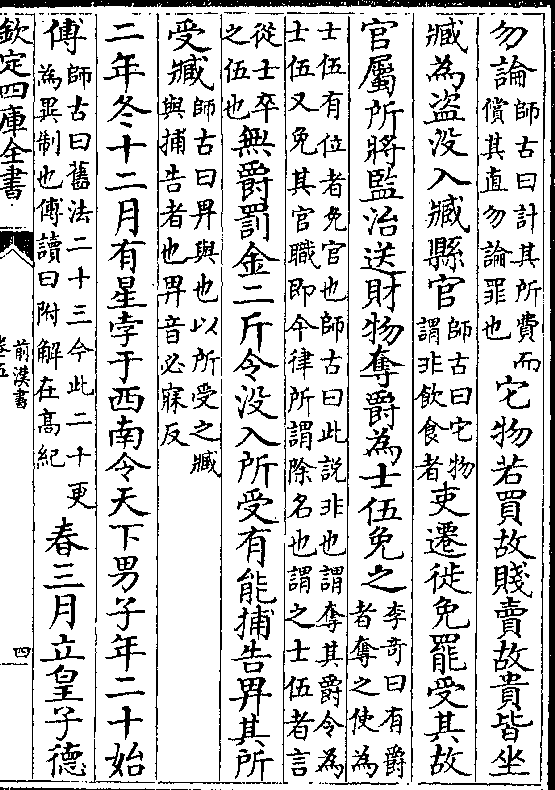 勿論師古曰計其所費而償其直勿論罪也它物若買故賤賣故貴皆坐
臧為盜没入臧縣官師古曰它物謂非飲食者吏遷徙免罷受其故
官屬所將監治送財物奪爵為士伍免之李奇曰有爵者奪之使為
士伍有位者免官也師古曰此說非也謂奪其爵令為士伍又免其官職即今律所謂除名也謂之士伍者言
從士卒之伍也無爵罰金二斤令没入所受有能捕告畀其所
受臧師古曰畀與也以所受之臧與捕告者也畀音必寐反
二年冬十二月有星孛于西南令天下男子年二十始
傅師古曰舊法二十三今此二十更為異制也傅讀曰附解在髙紀春三月立皇子德
欽定四庫全書
前漢書
卷五
四